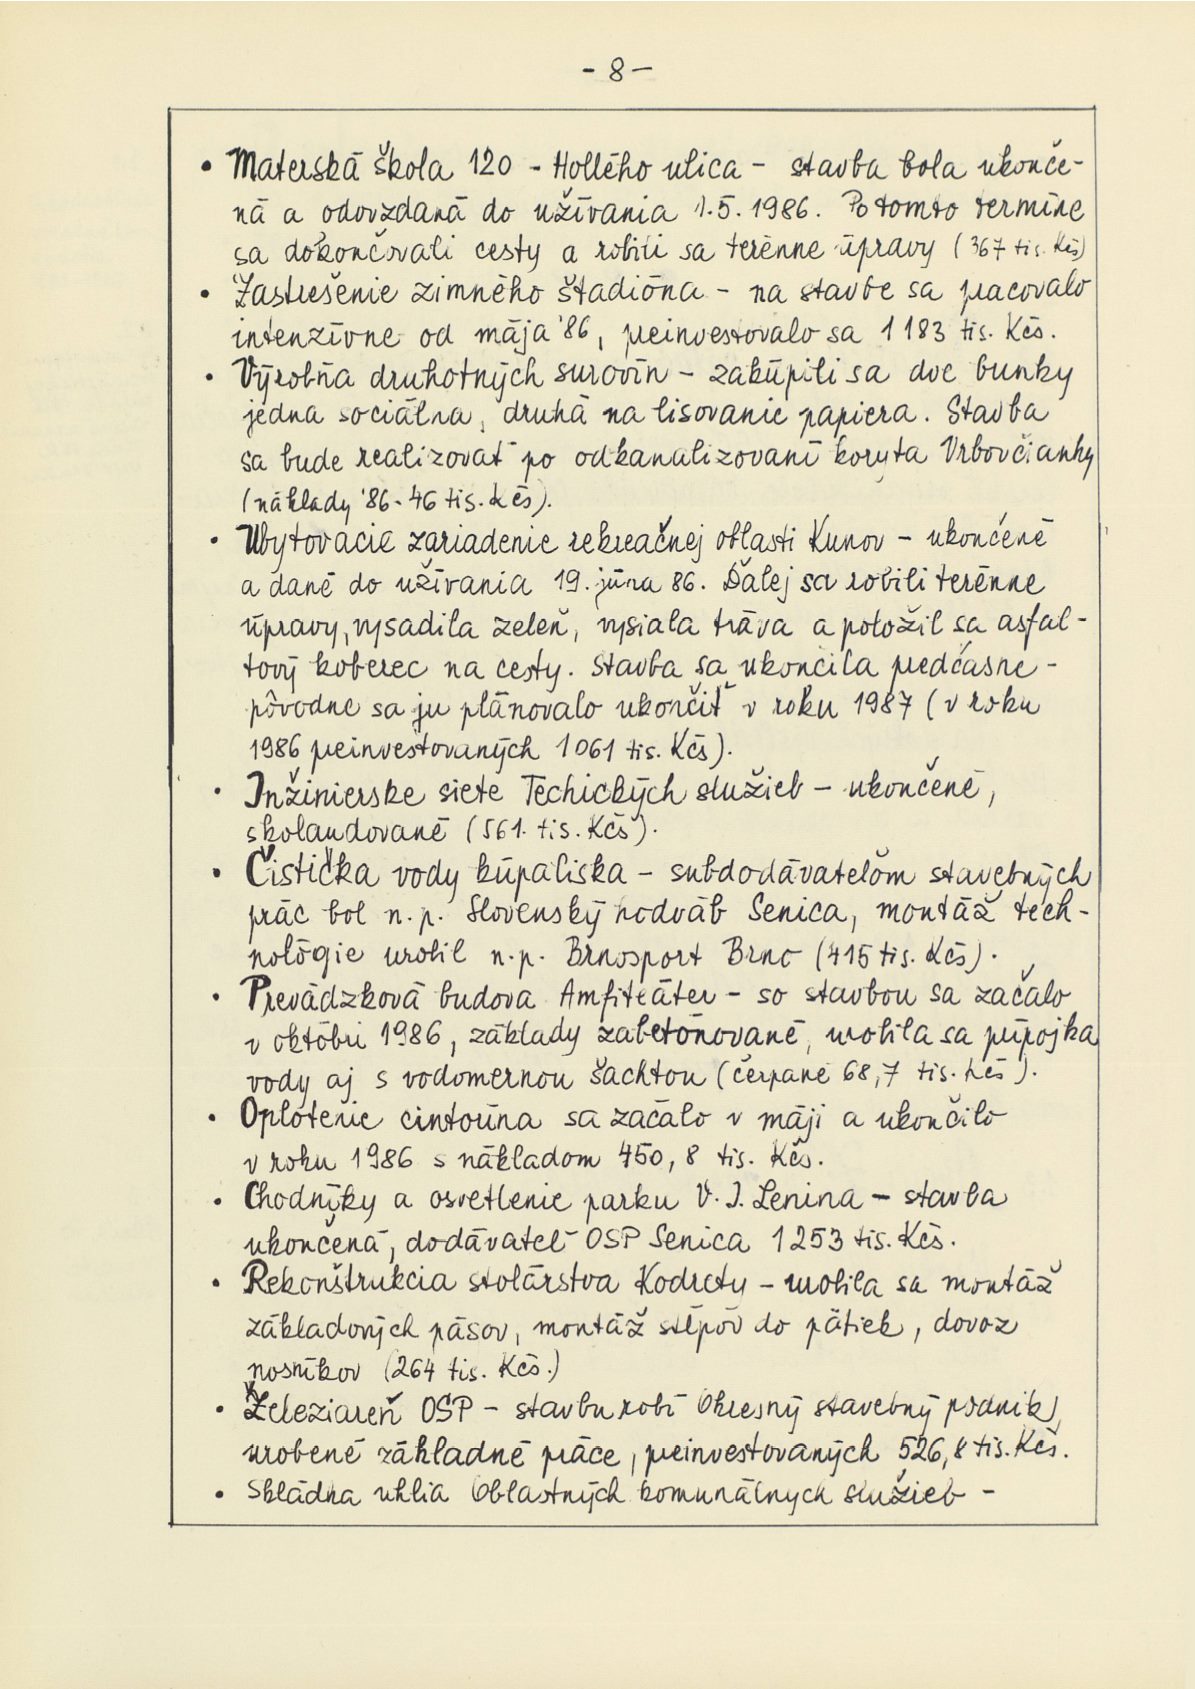 - 8 -
• Materská škola 120 - Hollého ulica - stavba bola ukonče-
ná a odovzdaná do užívania 1.5.1986. Po tomto termíne
sa dokončovali cesty a robili sa terénne úpravy (367 tis. Kčs)
• Zastrešenie zimného štadióna - na stavbe sa pracovalo
intenzívne od mája '86, preinvestovalo sa 1 183 tis. Kčs.
• Výrobňa druhotných surovín - zakúpili sa dve bunky
jedna sociálna, druhá na lisovanie papiera. Stavba
sa bude realizovať po odkanalizovaní koryta Vrbovčianky
(náklady '86 - 46 tis. Kčs).
• Ubytovacie zariadenie rekreačnej oblasti Kunov - ukončené
a dané do užívania 19. júna 86. Ďalej sa robili terénne
úpravy, vysadila zeleň, vysiala tráva a položil sa asfal-
tový koberec na cesty. Stavba sa ukončila predčasne -
pôvodne sa ju plánovalo ukončiť v roku 1987 (v roku
1986 preinvestovaných 1 061 tis. Kčs).
• Inžinierske siete Techických služieb - ukončené,
skolaudované (561. tis. Kčs).
• Čistička vody kúpaliska - subdodávateľom stavebných
prác bol n. p. Slovenský hodváb Senica, montáž tech-
nológie urobil n. p. Brnosport Brno (415 tis. Kčs).
• Prevádzková budova Amfiteáter - so stavbou sa začalo
v októbri 1986, základy zabetónované, urobila sa prípojka
vody aj s vodomernou šachtou (čerpané 68,7 tis. Kčs).
• Oplotenie cintorína sa začalo v máji a ukončilo
v roku 1986 s nákladom 450,8 tis. Kčs.
• Chodníky a osvetlenie parku V. I. Lenina - stavba
ukončená, dodávateľ OSP Senica 1 253 tis. Kčs.
• Rekonštrukcia stolárstva Kodrety - urobila sa montáž
základových pásov, montáž stĺpov do pätiek, dovoz
nosníkov (264 tis. Kčs.)
• Železiareň OSP - stavbu robí Okresný stavebný podnik,
urobené základné práce, preinvestovaných 526,8 tis. Kčs.
• Skládka uhlia Oblastných komunálnych služieb -